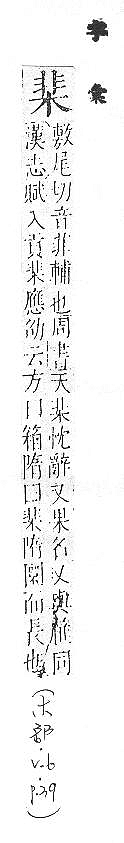 字彙
棐
敷尾切音非輔也周書天棐忱辭又果名又與榧同
漢志賦入貢棐應劭云方曰箱隋曰棐隋圜而長也
(木部·v.6·p.39)